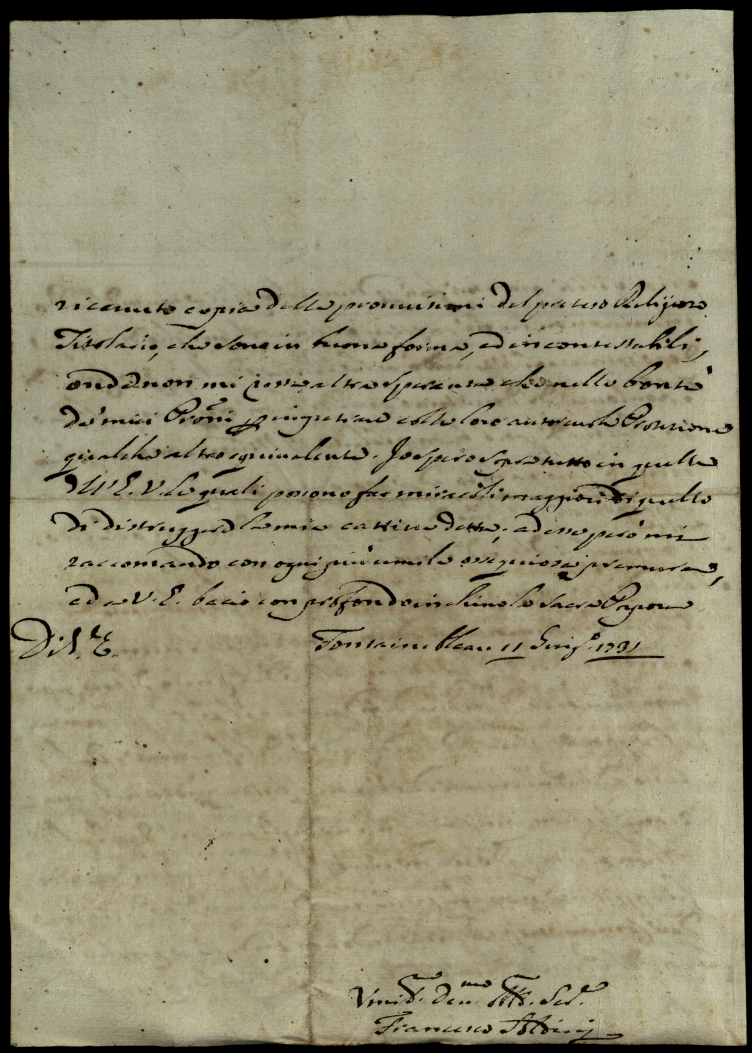 ricevuto copia delle provvisioni del preteso Religioso
Titolario, che sono in buona forma, ed incontestabili,
onde non mi resta altra speranza che nelle bontà
de' miei Pro͞ni p impetrare colla loro autorevole Protezione
qualche altro equivalente. Io spero sopra tutto in quella
dell'E. V. le quali possono far miracoli maggiori di quello
di distruggere la mia cattiva detta; ad esse però mi
raccomando con ogni più umile ossequiosa premura,
ed a V. E. bacio con profondo inchino la sacra Porpora
Di V. E.
Fontainebleau 11 1731
Umil. Dev.mo Obb. Ser.
Francesco